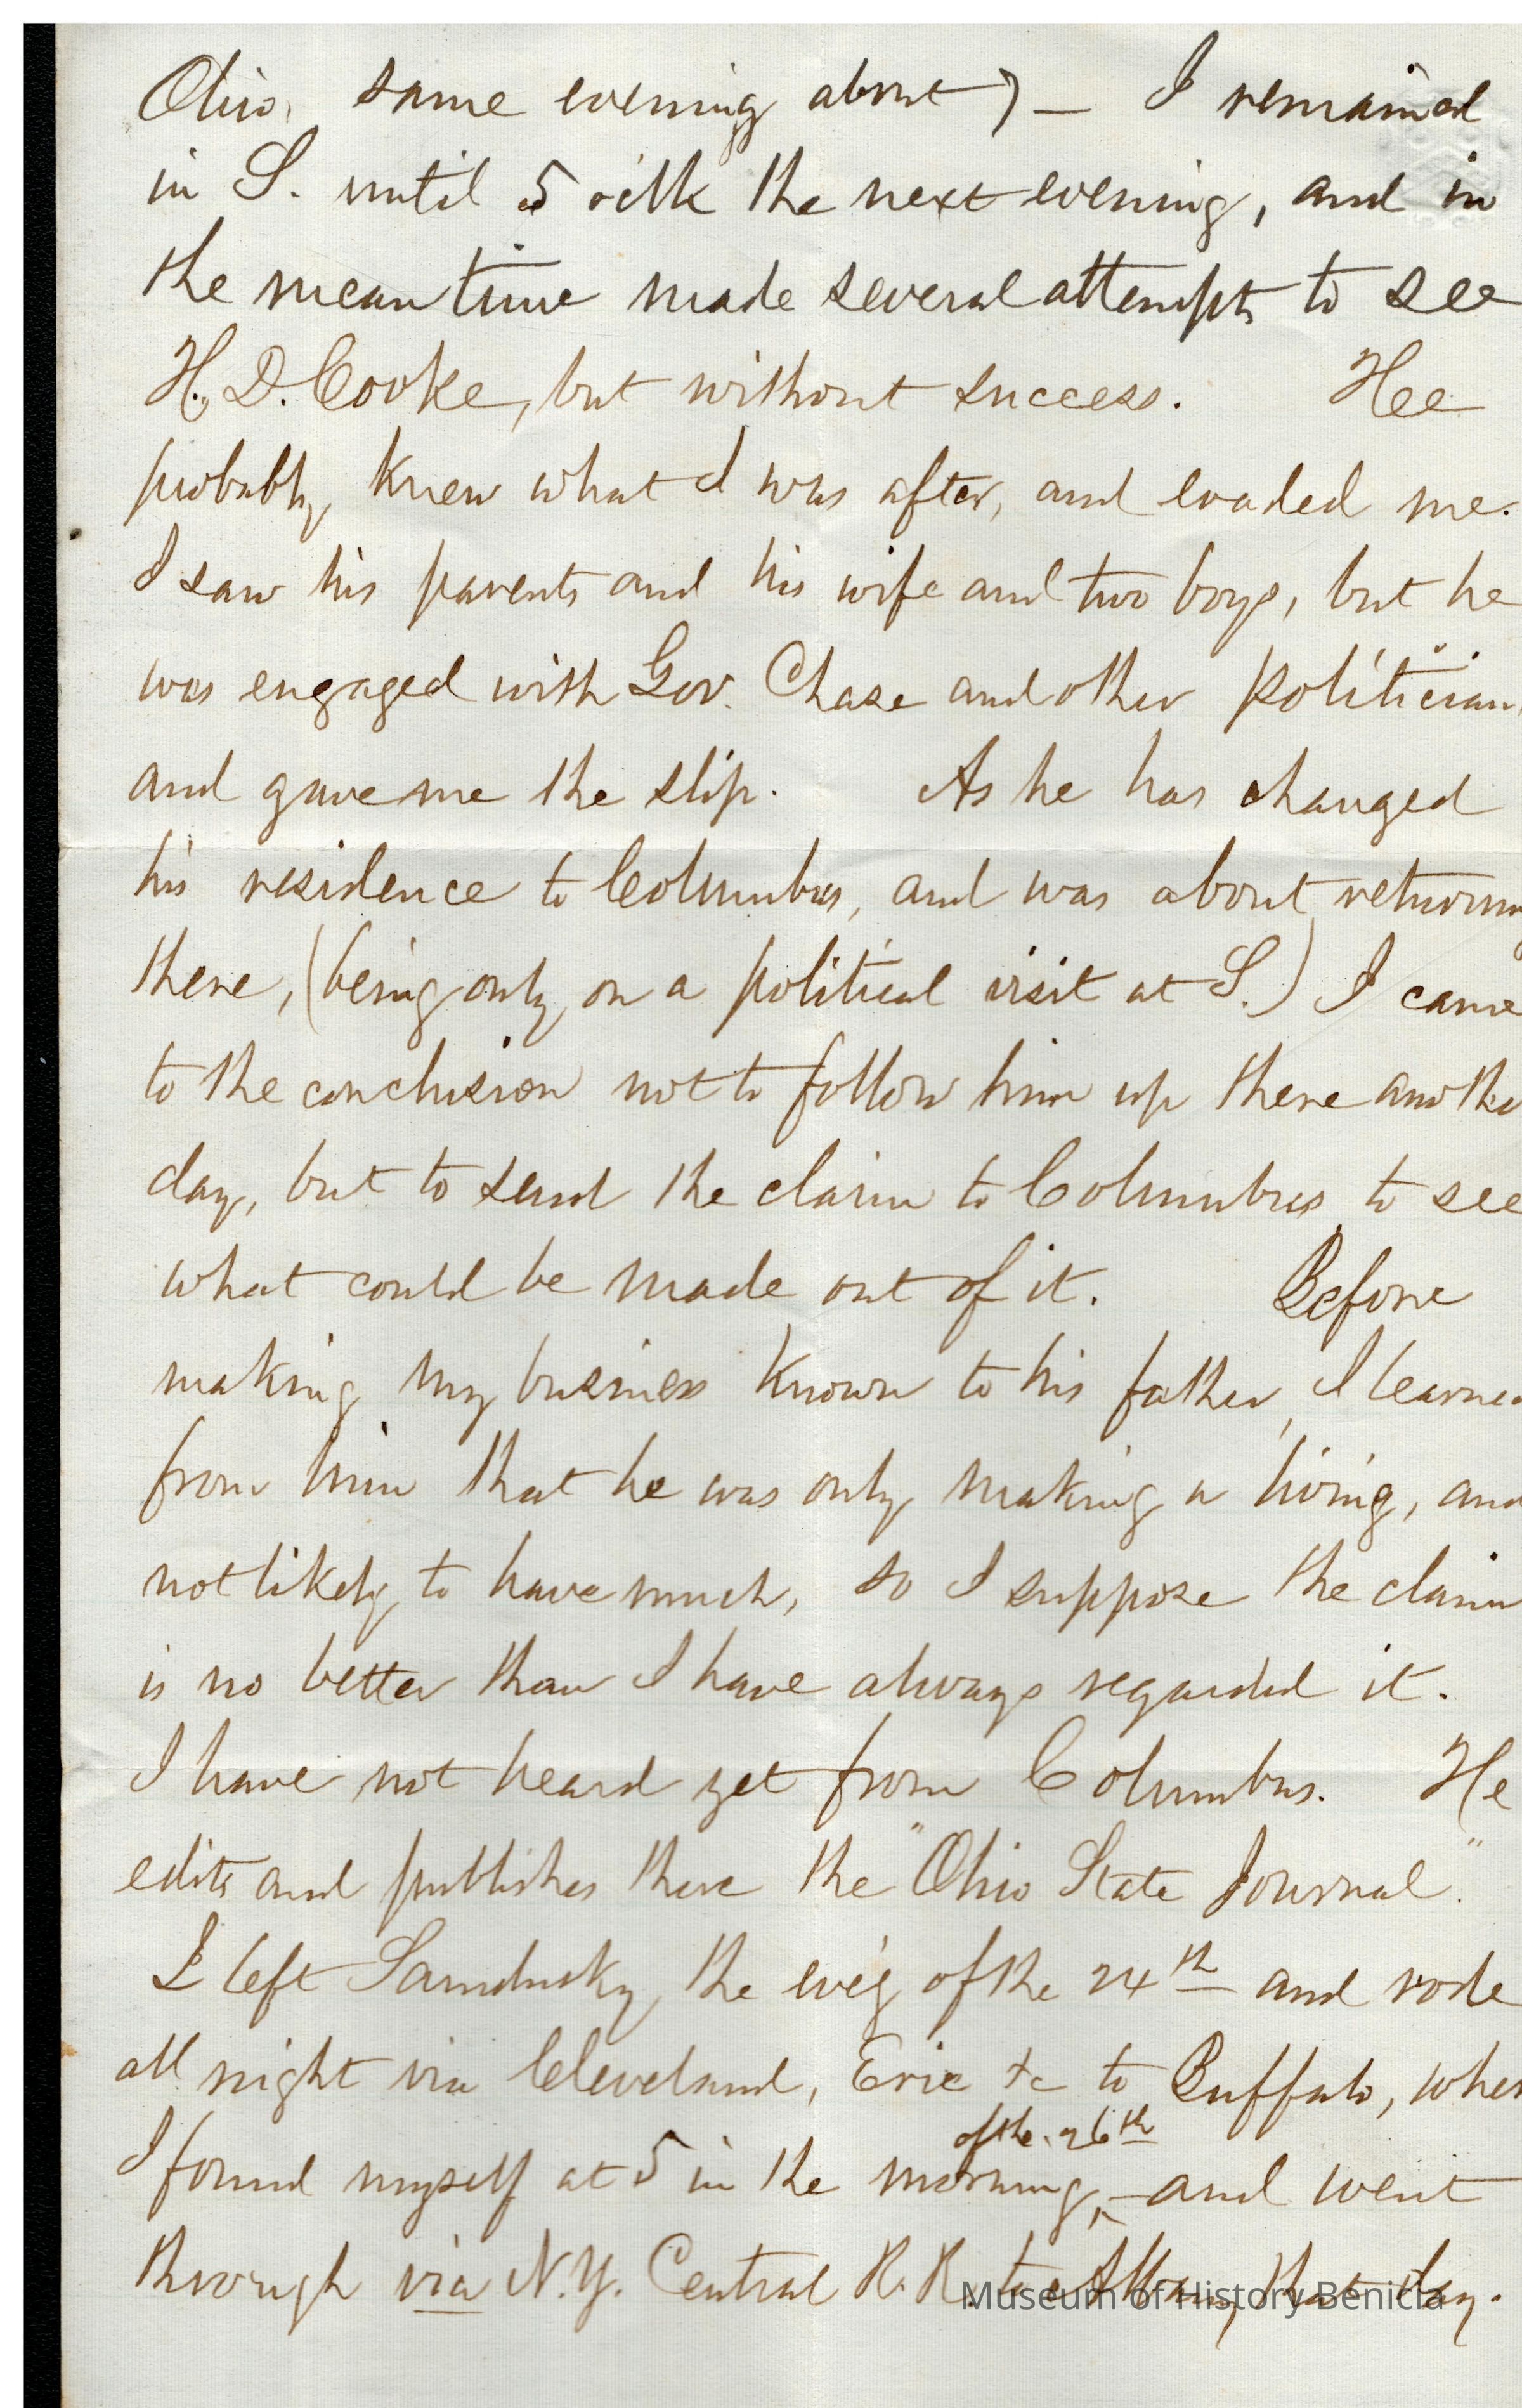 Ohio, same evening about 7 — I remained
in S. until 5 o'clk the next evening, and in
the mean time made several attempts to see
H. D. Cooke, but without success. Hee
probably knew what I was after, and evaded me.
I saw his parents and his wife and two boys, but he
was engaged with Gov. Chase and other politician
and gave me the slip. As he has changed
his residence to Columbus, and was about returning
there, (being only on a political visit at S.) I came
to the conclusion not to follow him up there another
day, but to send the claim to Columbus to see
what could be made out of it. Before
making my business known to his father, I learned
from him that he was only making a living, and
not likely to have much, so I suppose the claim
is no better than I have always regarded it.
I have not heard yet from Columbus. He
edits and publishes there the "Ohio State Journal".
I left Sandusky the ev'g of the 24th and rode
all night via Cleveland, Erie &c to Buffalo, wher
of the 26th
I found myself at 5 in the morning,—and went
through via N.Y. Central R. R. to Albany that day.
Museum of History Benicia